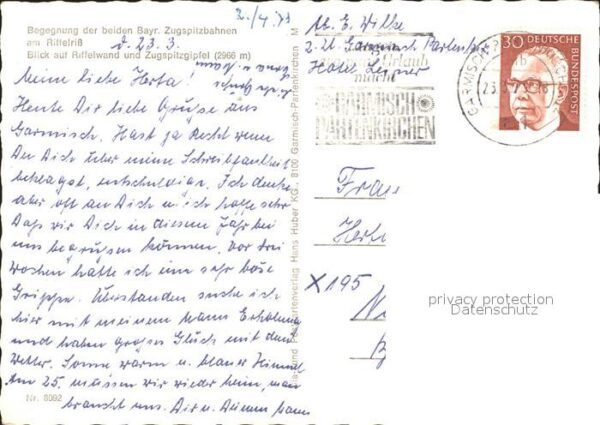 2./4.73
Begegnung der beiden Bayr. Zugspitzbahnen
am Riffelriß
Blick auf Riffelwand und Zugspitzgipfel (2966 m)
d. 23.3.
Meine liebe Herta!
Heute Dir liebe Grüße aus
Garmisch. Hast ja Recht wenn
Du Dich über meine Schreibfaulheit
beklagst, entschuldige. Ich denke
aber oft an Dich u. ich hoffe sehr
daß wir Dich in diesem Jahr bei
uns begrüßen können. Vor drei
Wochen hatte ich eine sehr böse
Grippe. Überstanden suche ich
hier mit meinem Mann Erholung
und haben großes Glück mit dem
Wetter. Sonne warm u. blauer Himmel
Am 25. müssen wir wieder heim, man
braucht uns. Dir u. Deinem Mann
Nr. 8092
Postkartenverlag Hans Huber KG., 8100 Garmisch-Partenkirchen
Abs. E. Wilke
z. Zt. Garmisch Partenk
Hotel
Urlaub
GARMISCH
PARTENKIRCHEN
GARMISCH-PARTENKIRCHEN
30
DEUTSCHE
BUNDESPOST
Frau
X 195
privacy protection
Datenschutz